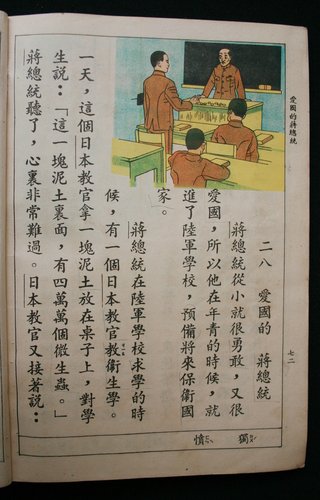 愛國的蔣總統
七二
二八　愛國的　蔣總統
蔣總統從小就很勇敢，又很
愛國，所以他在年青的時候，就
進了陸軍學校，預備將來保衛國
家。
蔣總統在陸軍學校求學的時
候，有一個日本教官教衛生學。
一天，這個日本教官拿一塊泥土放在桌子上，對學
生說：「這一塊泥土裏面，有四萬萬個微生蟲。」
蔣總統聽了，心裏非常難過。日本教官又接著說：
獨
慎